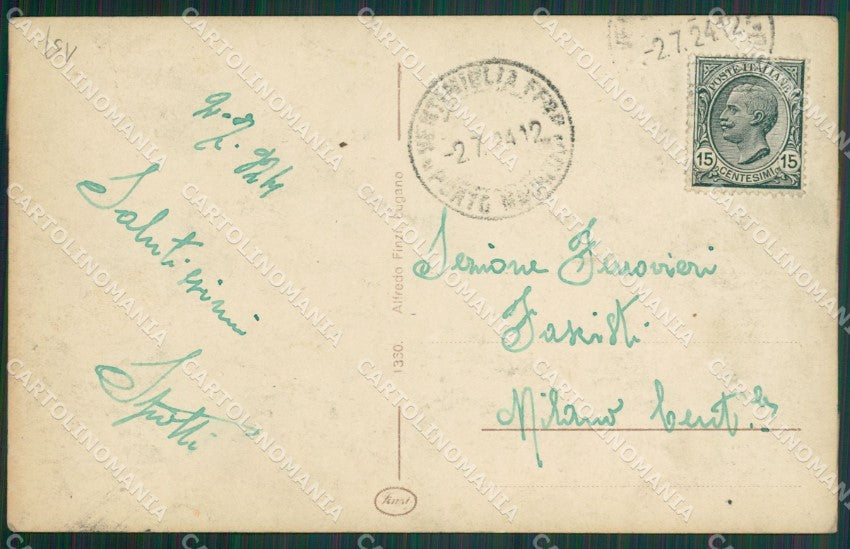 151
2-7-924
Salutissimi
Spotti
1330. Alfredo Finzi, Lugano
Finzi
VENTIMIGLIA
-2.7.24 12
PORTO
-2.7.24 12
POSTE ITALIANE
15 15
CENTESIMI
Sezione Ferrovieri
Fascisti
Milano Cent.le
CARTOLINOMANIA